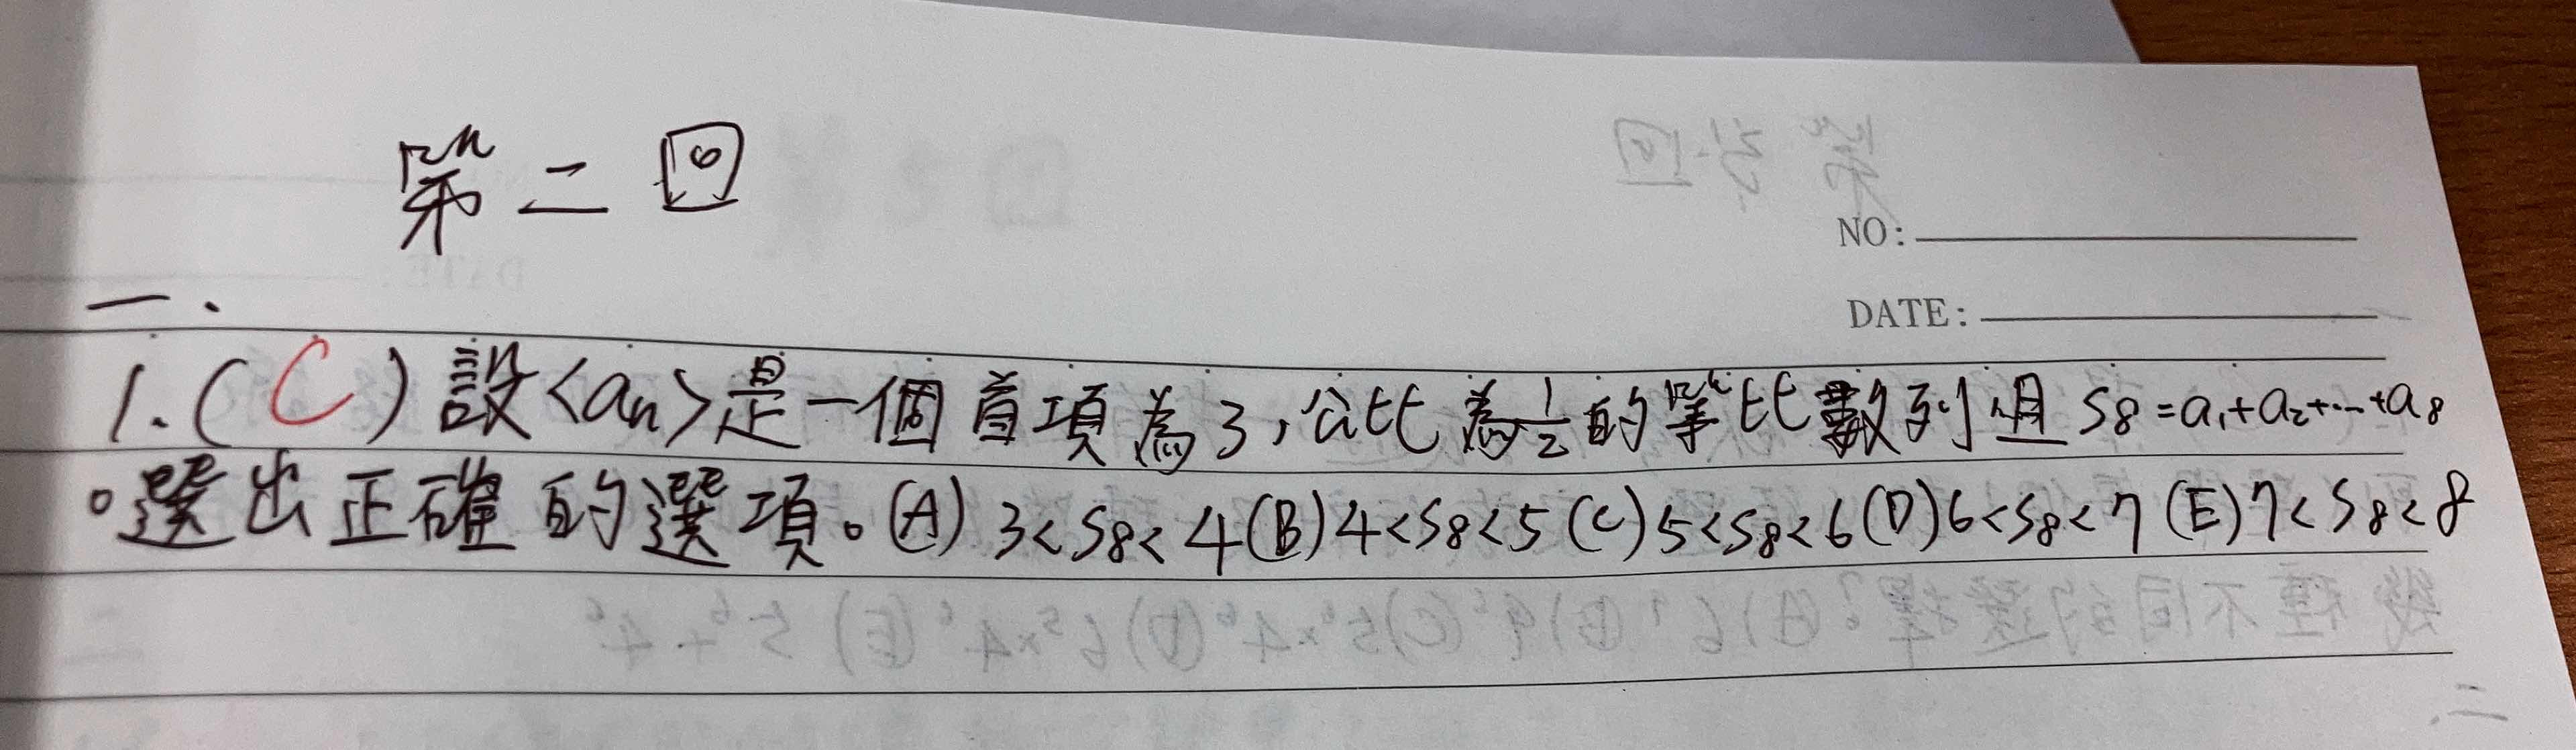 第二回
NO:
DATE:
一.
1.(C)設<aₙ>是一個首項為3,公比為1/2的等比數列且S₈=a₁+a₂+…+a₈
。選出正確的選項。(A)3<S₈<4(B)4<S₈<5(C)5<S₈<6(D)6<S₈<7(E)7<S₈<8